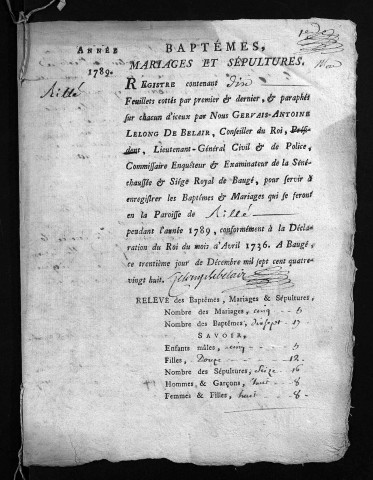 ANNÉE
1789.
Rillé
BAPTÊMES,
MARIAGES ET SÉPULTURES.
REGISTRE contenant dix
Feuillets cottés par premier & dernier, & paraphés
sur chacun d'iceux par Nous GERVAIS-ANTOINE
LELONG DE BELAIR, Conseiller du Roi, Prési-
dent, Lieutenant-Général Civil & de Police,
Commissaire Enquêteur & Examinateur de la Séné-
chaussée & Siége Royal de Baugé, pour servir à
enregistrer les Baptêmes & Mariages qui se feront
en la Paroisse de Rillé
pendant l'année 1789, conformément à la Décla-
ration du Roi du mois d'Avril 1736. A Baugé,
ce trentième jour de Décembre mil sept cent quatre-
vingt huit. Lelong de belair
RELEVÉ des Baptêmes, Mariages & Sépultures,
Nombre des Mariages, cinq 5
Nombre des Baptêmes, dix sept 17
SAVOIR,
Enfants mâles, cinq 5
Filles, Douze 12
Nombre des Sépultures, Seize 16
Hommes & Garçons, huit 8
Femmes & Filles, huit 8